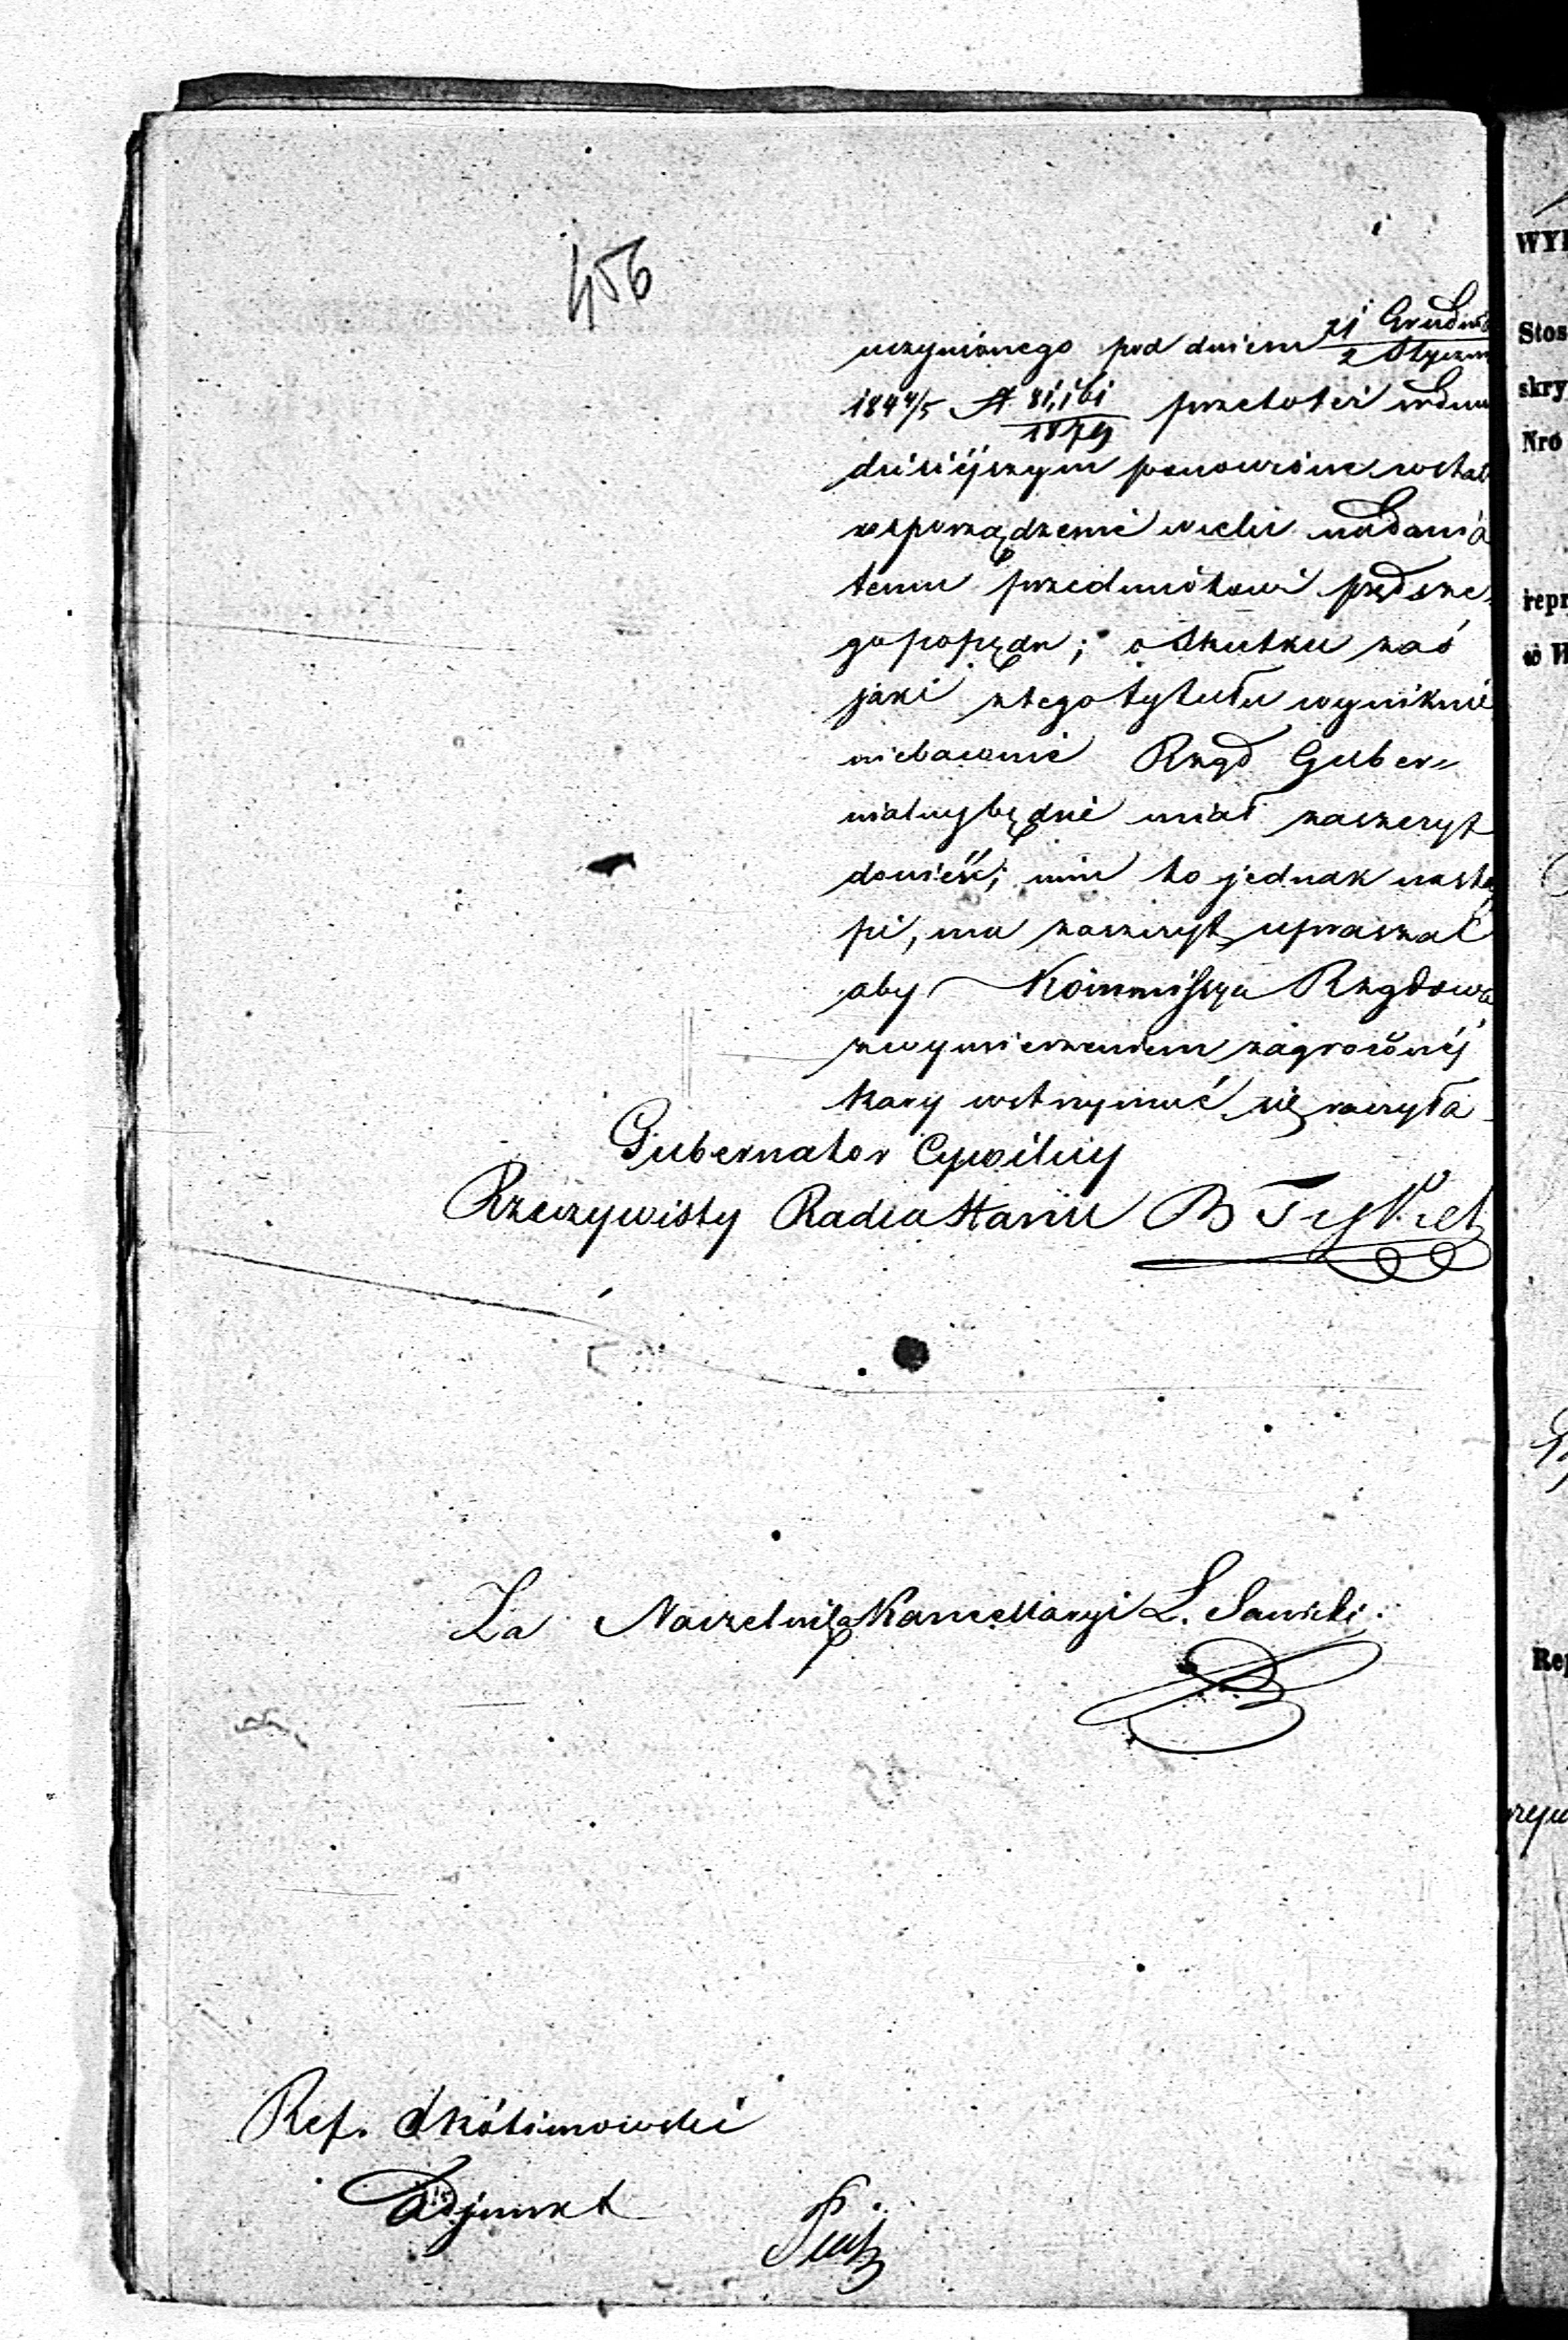 456
uczynionego pod dniem 21 Grudnia / 2 Styczn
184 4/5 N 81,161 / 1879 przetoteż w dniu
dzisiéjszym ponowione został
rozporządzenie wcelu nadania
temu przedmiotowi prędsze
go popędu; o skutku zaś
jaki ztego tytułu wyniknie
niebawnie Rząd Guber-
nialny będzie miał zaszczyt
donieść; nim to jednak nastą
pi, ma zaszczyt upraszać
aby Kommissya Rządowa
zwymierzeniem zagrożonéj
kary wstrzymać się raczyła
Gubernator Cywilny
Rzeczywisty Radca Stanu
Za Naczelnika Kancellaryi L. Sawicki
Ref. Skólimowski
Adjunkt
WYD
Stos
skry
Nro
repr
Rep